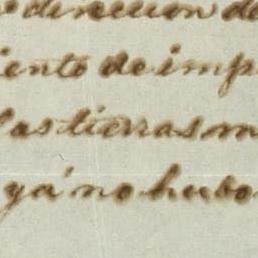 direccion de
iento de imp
las tierras m
ya no hubo